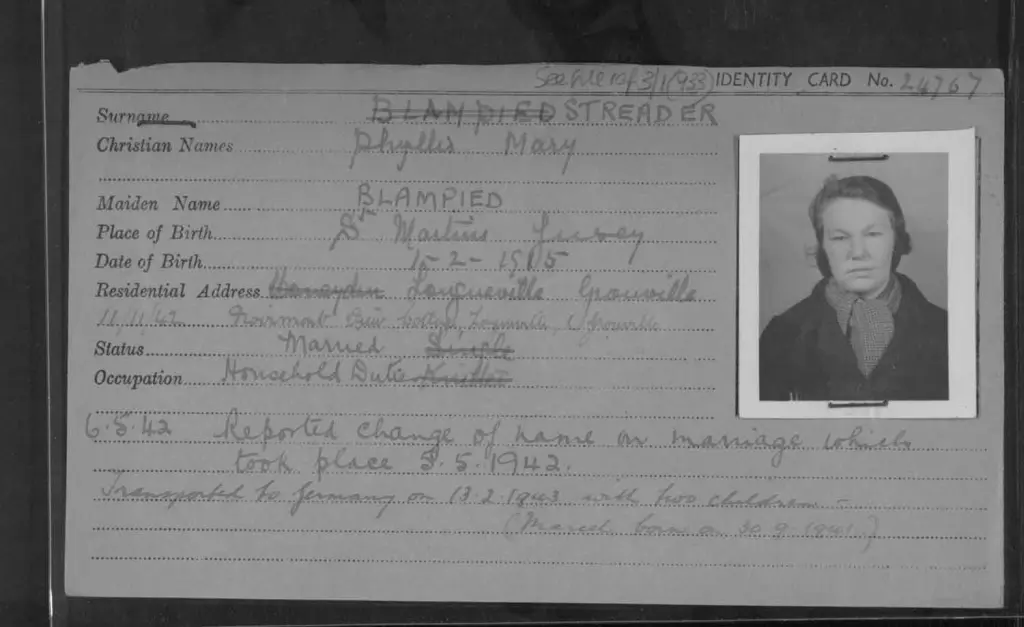 See file ref 3/1(933) IDENTITY CARD No. 24767
Surname BLAMPIED STREADER
Christian Names Phyllis Mary
Maiden Name BLAMPIED
Place of Birth St Martins Jersey
Date of Birth 15-2-1915
Residential Address Longueville Grouville
11/11/42 Noirmont View Cottage, Longueville, Grouville
Status Married Single
Occupation Household Duties Knitter
6.5.42 Reported change of name on marriage which
took place 5.5.1942.
Transported to Germany on 13.2.1943 with two children -
born on 30.9.1941.)